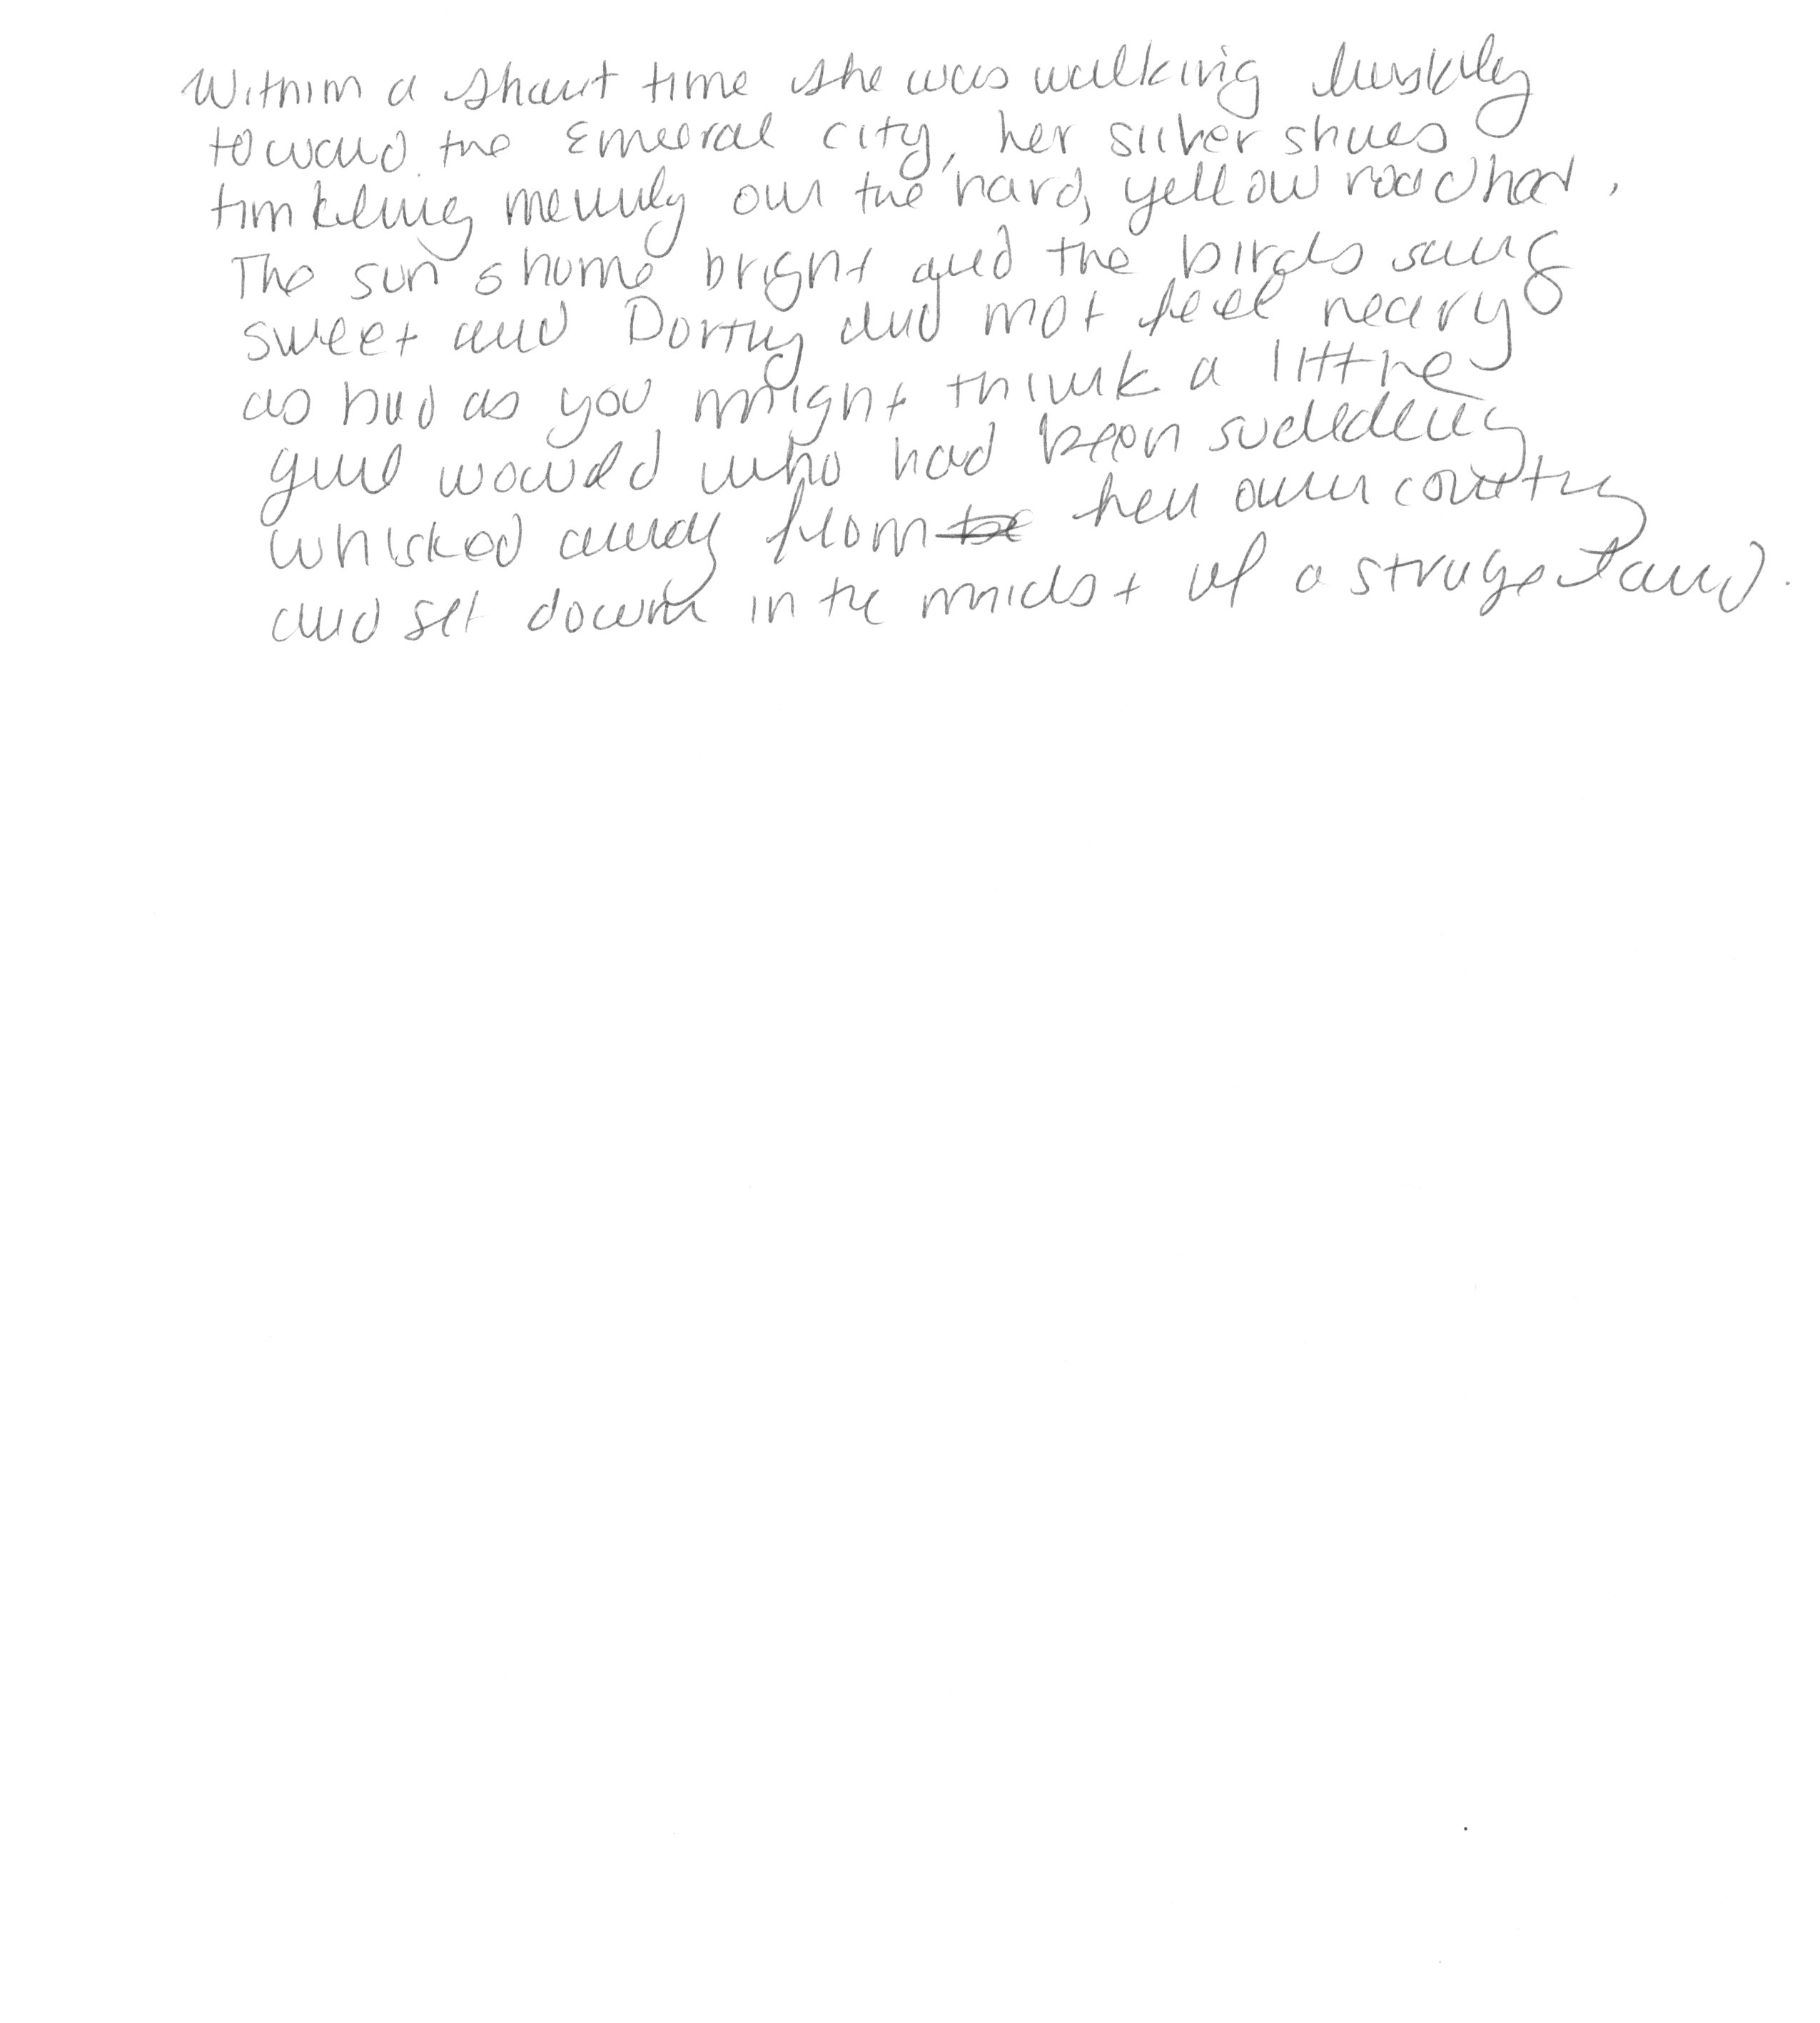 Within a short time she was walking briskly
toward the Emeral city, her silver shoes
tinkling merrily on the hard, yellow roadbed.
The sun shone bright and the birds sang
sweet and Dorthy did not feel neary
as bad as you might think a little
girl would who had been suddenly
whisked away from her own country
and set down in the midst of a strange land.